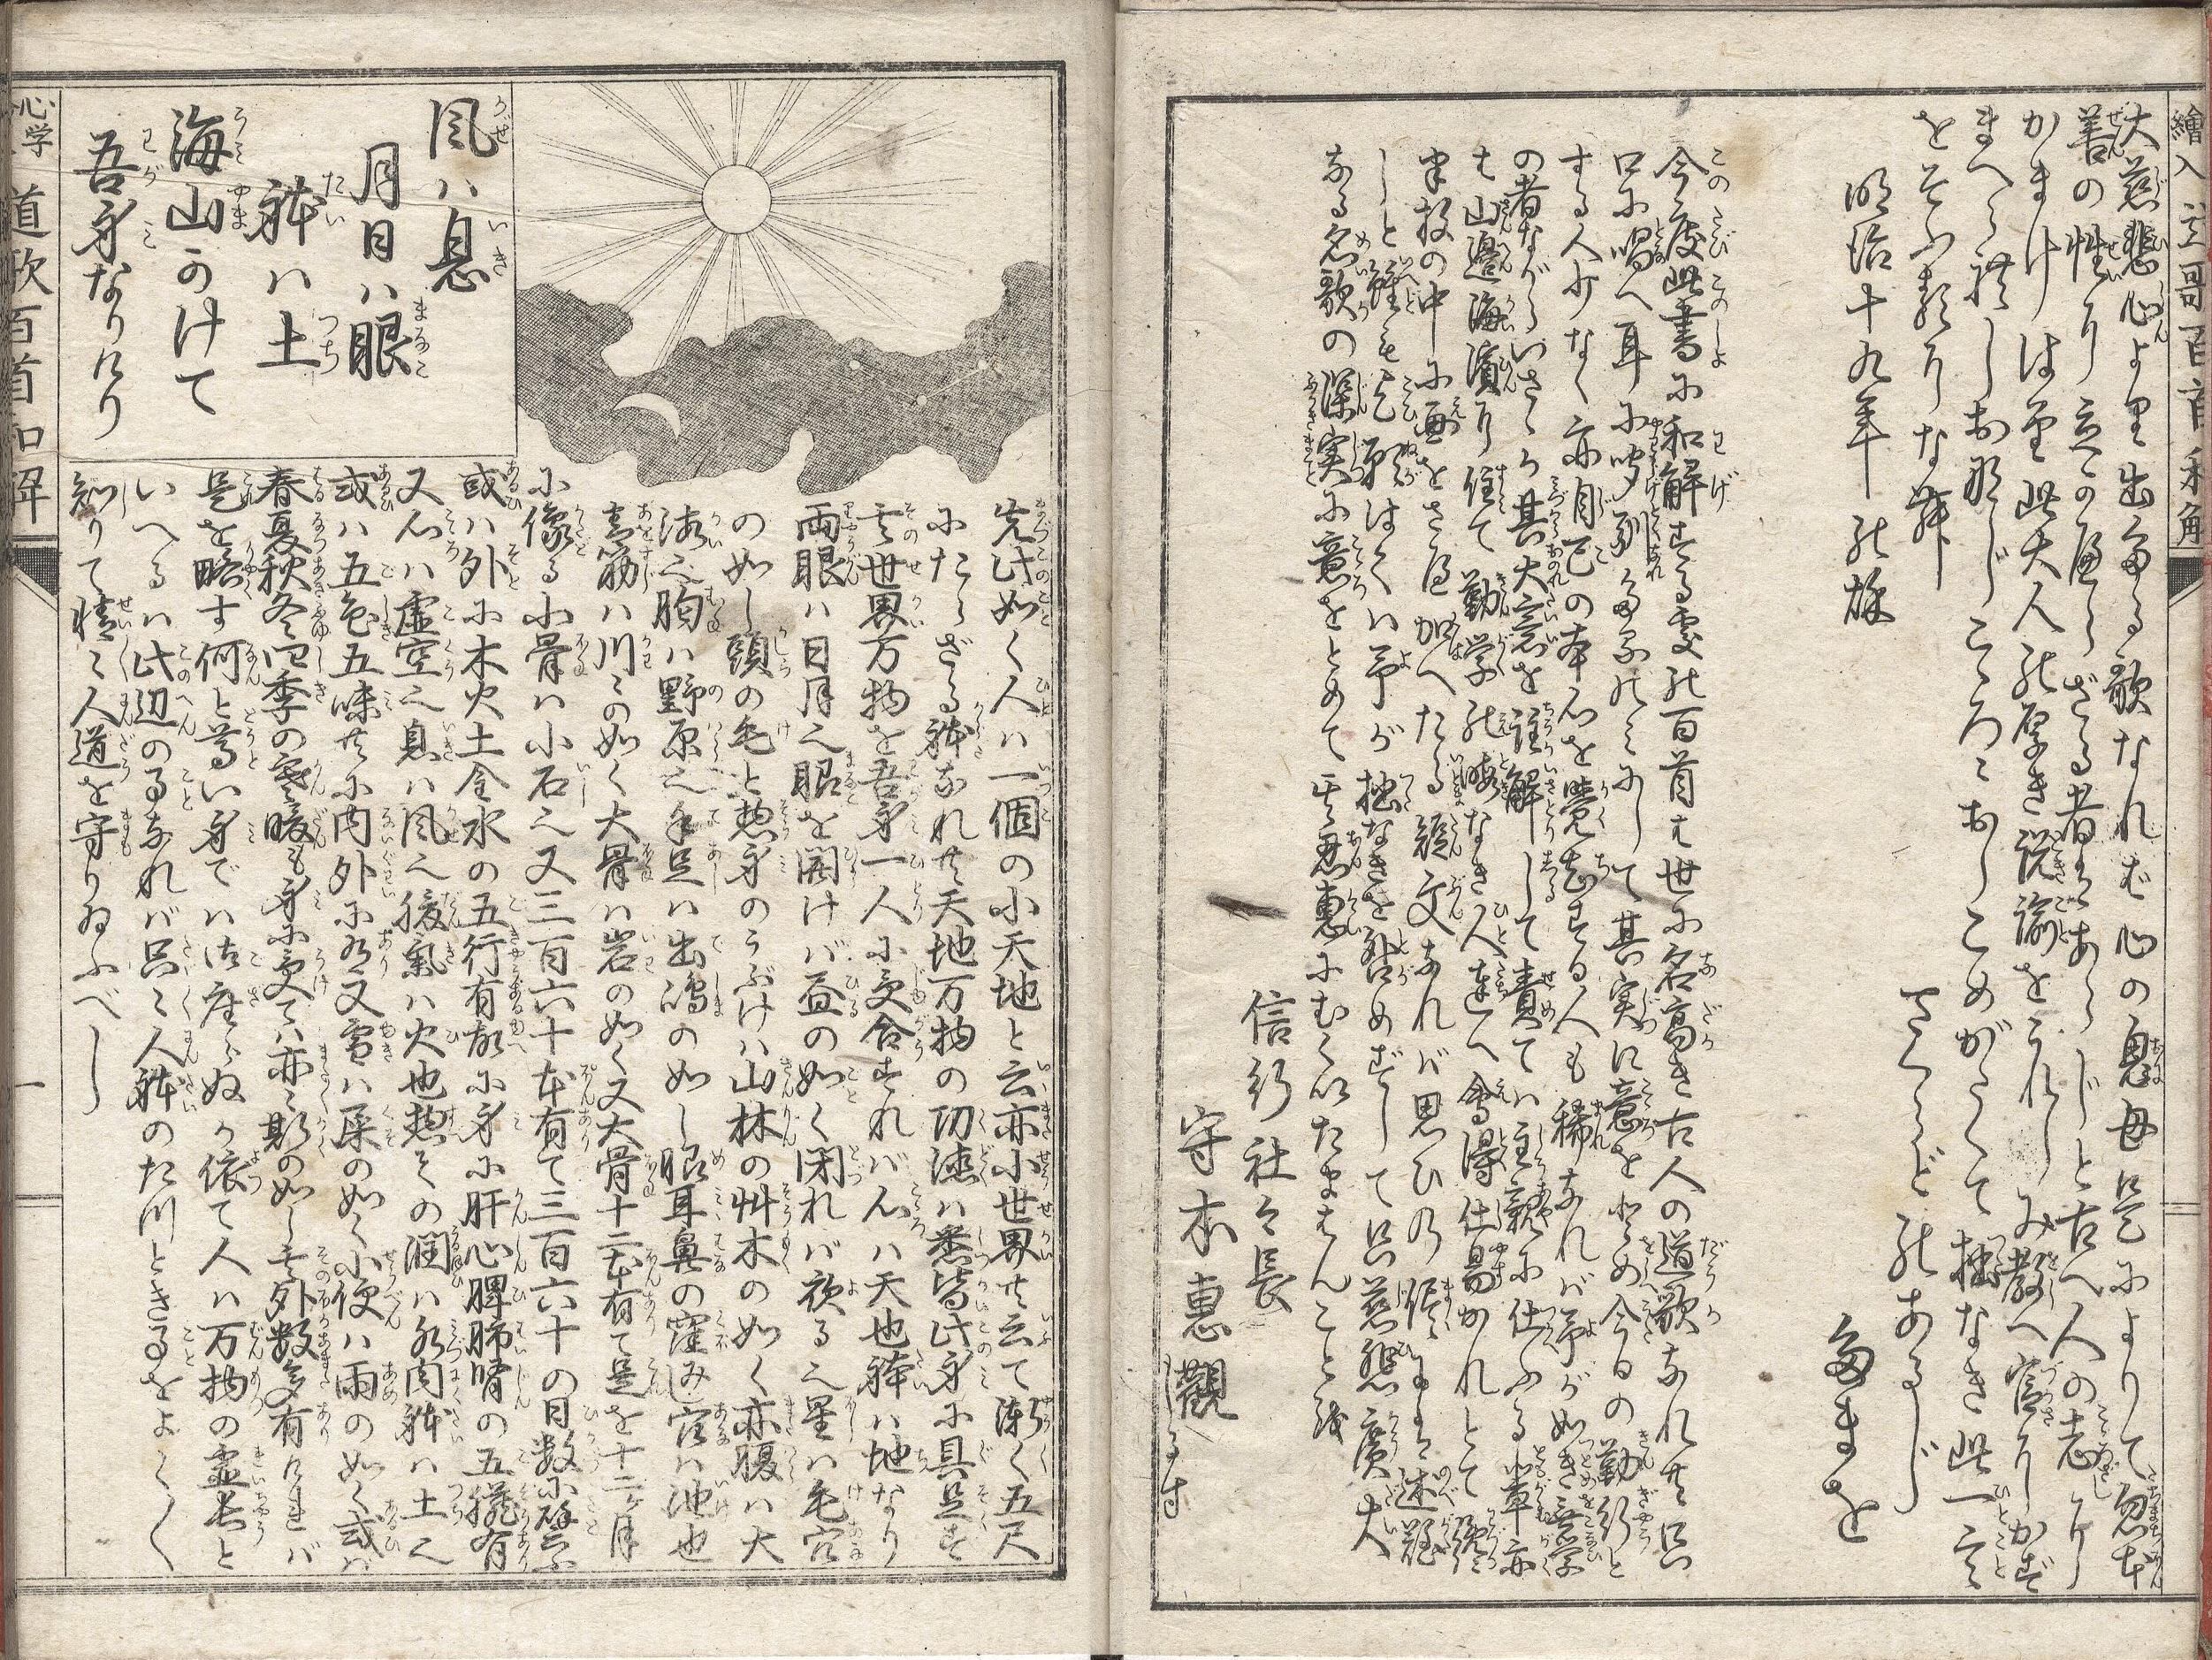 繪入道哥百首和解
大慈悲心より出たる歌なれば心の恩母是によりて忽本
善の性に立かへらざる者はあらじと古へ人の志に
かまけは至此大人の厚き説諭をうれしみ教へ官にかず
まへられしお那じこころにおしこめがたくて拙なき此一言
をそふるになむ
明治十九年の秋
さくらどのあるじ
たまを
今度此書に和解する処の百首は世に名高き古人の道歌なれ共只
口に唱へ耳に吟訓たるのみにして其実に意をとめ今日の勤行と
する人少なく亦自己の本心を覚知する人も稀なれば予が如き無学
の者ながらいささか其大意を註解して責ては主親に仕ふる輩亦
は山邉海濱に住て勤学の暇なき人達へ會得仕易かれとて
半枚の中に画をさへ加へたる短文なれば思ひの侭には述難
しと雖も乞願はくは予が拙なきを咎めずして只慈悲廣大
なる名歌の深実に意をとめて其恩恵にむくいたまはんことを
信行社々長
守本惠觀しるす
風ハ息
月日ハ眼
躰ハ土
海山かけて
吾身なりけり
先此如く人ハ一個の小天地と云亦小世界共云て漸く五尺
にたらざる躰なれ共天地万物の功徳ハ悉皆此身に具足す
其世界万物を吾身一人に受合すれバ心ハ天也躰ハ地なり
両眼ハ日月也眼を開けバ昼の如く閉れバ夜る也星ハ毛穴
の如し頭の毛と惣身のうぶけハ山林の艸木の如く亦腹ハ大
海也胸ハ野原也手足ハ出嶋の如し眼耳鼻の窪み穴ハ池也
青筋ハ川々の如く大骨ハ岩の如く又大骨十二本有て是を十二ヶ月
に像る小骨ハ小石也又三百六十本有て三百六十の日数に譬ふ
或ハ外に木火土金水の五行有故に身に肝心脾肺腎の五臓有
又心ハ虚空也息ハ風也暖氣ハ火也惣その潤ハ水肉躰ハ土也
或ハ五色五味共に内外に有又雪ハ屎の如く小便ハ雨の如く或ハ
春夏秋冬四季の寒暖も身に受てハ亦々斯の如し其外数多有けれバ
是を略す何と尊い身でハ御座らぬか依て人ハ万物の霊長と
いへるハ此辺の事なれバ只々人躰のた川ときことをよく〱
知りて精々人道を守りゐふべし
心学 道歌百首和解
一